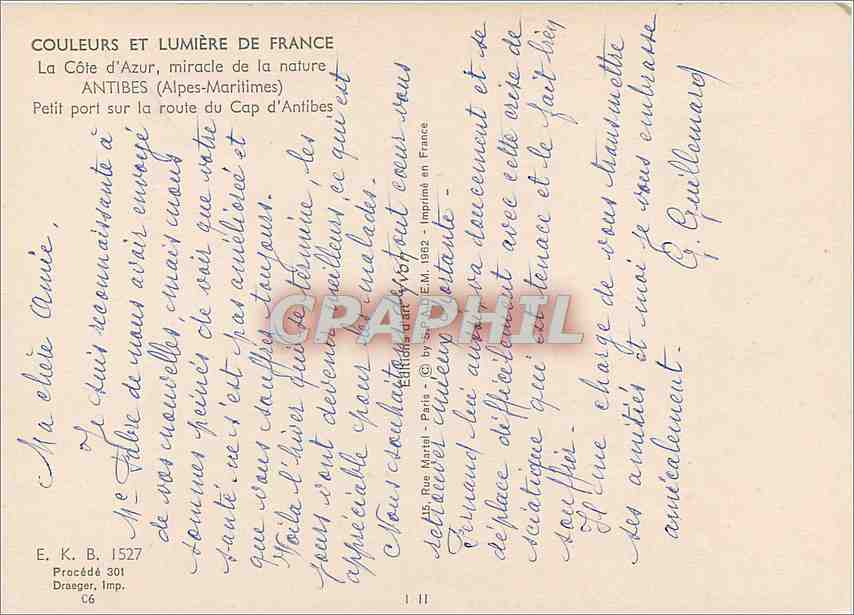 COULEURS ET LUMIÈRE DE FRANCE
La Côte d'Azur, miracle de la nature
ANTIBES (Alpes-Maritimes)
Petit port sur la route du Cap d'Antibes
Ma chère Amie,
Je suis reconnaissante à
Me Fabre de nous avoir envoyé
de vos nouvelles mais nous
sommes peinés de voir que votre
santé ne s'est pas améliorée et
que vous souffrez toujours.
Voilà l'hiver qui se termine, les
jours vont devenir meilleurs, ce qui est
appréciable pour les malades.
Nous souhaitons de tout coeur vous
retrouver mieux portante -
Fernand lui aussi va doucement et se
déplace difficilement avec cette crise de
sciatique qui est tenace et le fait bien
souffrir -
Il me charge de vous transmettre
ses amitiés et moi je vous embrasse
amicalement -
G. Guillemard
Editions d'art Yvon
15, Rue Martel - Paris - © by S.P.A.D.E.M. 1962 - Imprimé en France
CPAPHIL
E. K. B. 1527
Procédé 301
Draeger, Imp.
C6
I II